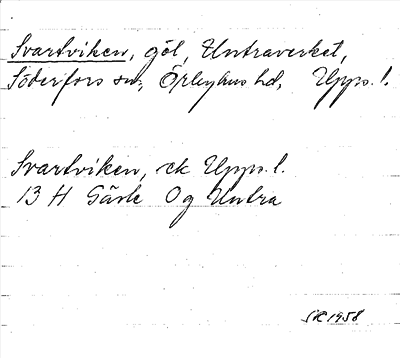 Svartviken, göl, Untraverket,
Söderfors sn, Örbyhus hd, Upps. l.
Svartviken, ek Upps. l.
13 H Gävle Og Untra
1958